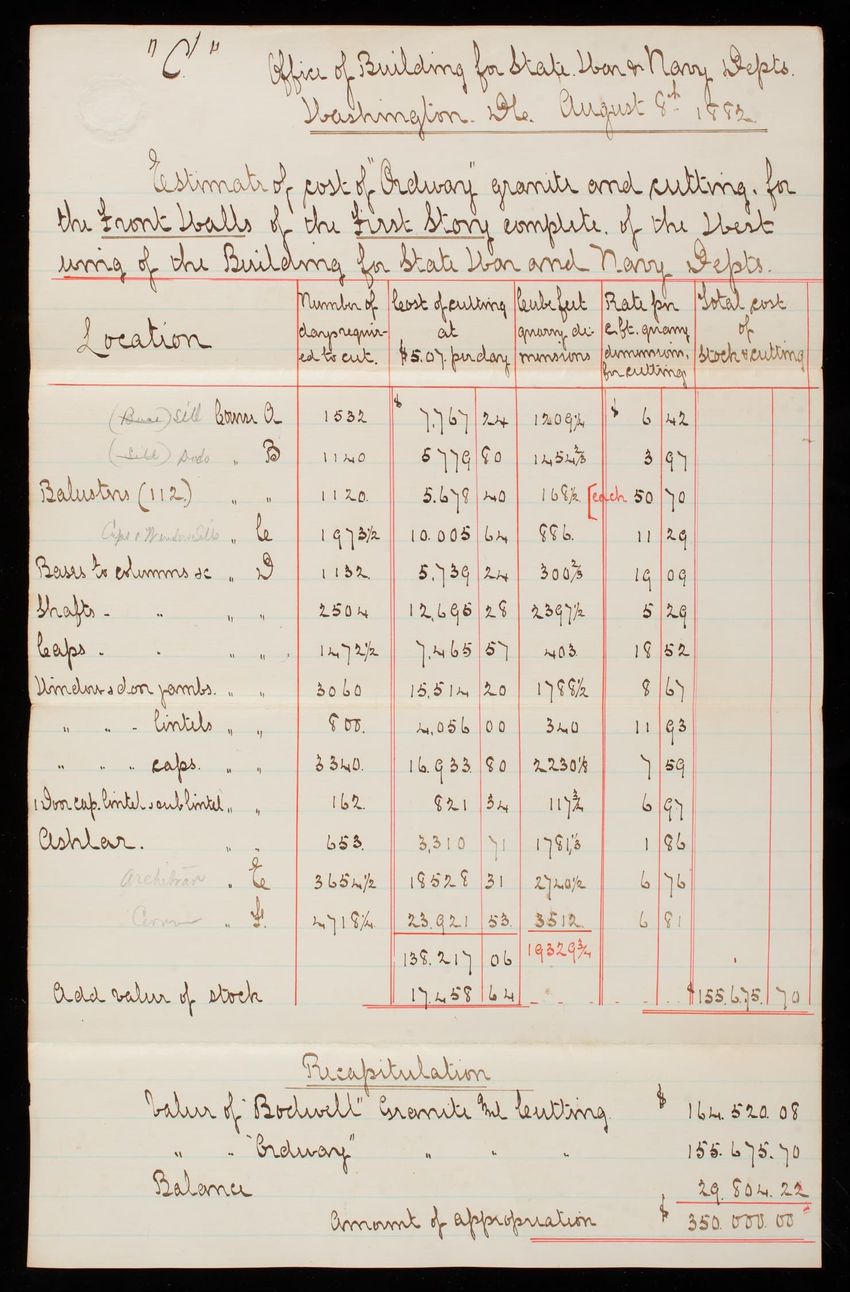 "C."
Office of Building for State. War & Navy Depts.
Washington. DC. August 8th 1882.
Estimate of cost of "Ordway" granite and cutting. for
the Front Walls of the First Story complete. of the West
wing of the Building for State War and Navy Depts.
Location | Number of days requir-ed to cut. | Cost of cutting at $5.07. per day | Cube feet quarry di-mensions | Rate per c. ft. quarry dimensions, for cutting | Total cost of Stock & cutting
(Base) Sill Course A 1532 $7.767 24 1209¼ $6 42
(Sill) Dado " B 1140 5779 80 1454⅔ 3 97
Balusters (112.) " " 1120. 5.678 40 168½ [each 50 70
Caps & Window Sills " C 1973½ 10.005 64 886. 11 29
Bases to columns &c " D 1132. 5.739 24 300⅔ 19 09
Shafts - " " " 2504 12,695 28 2397½ 5 29
Caps - " " " 1472½ 7.465 57 403 18 52
Window & door jambs. " " 3060 15.514 20 1788½ 8 67
" " - lintels " " 800. 4,056 00 340 11 93
" " " caps. " " 3340. 16.933 80 2230⅛ 7 59
1 Door cap. lintel & sub lintel " " 162. 821 34 117¾ 6 97
Ashlar. " " 653. 3,310 71 1781⅓ 1 86
Architrave " E 3654½ 18528 31 2740½ 6 76
" F. 4718¼ 23.921 53. 3512 6 81
138.217 06 19329¾
Add value of stock 17.458 64 $155.675. 70
Recapitulation
Value of "Bodwell" Granite and Cutting $164.520.08
" " "Ordway" " " " 155.675.70
Balance 29.804.22
Amount of appropriation $350.000.00